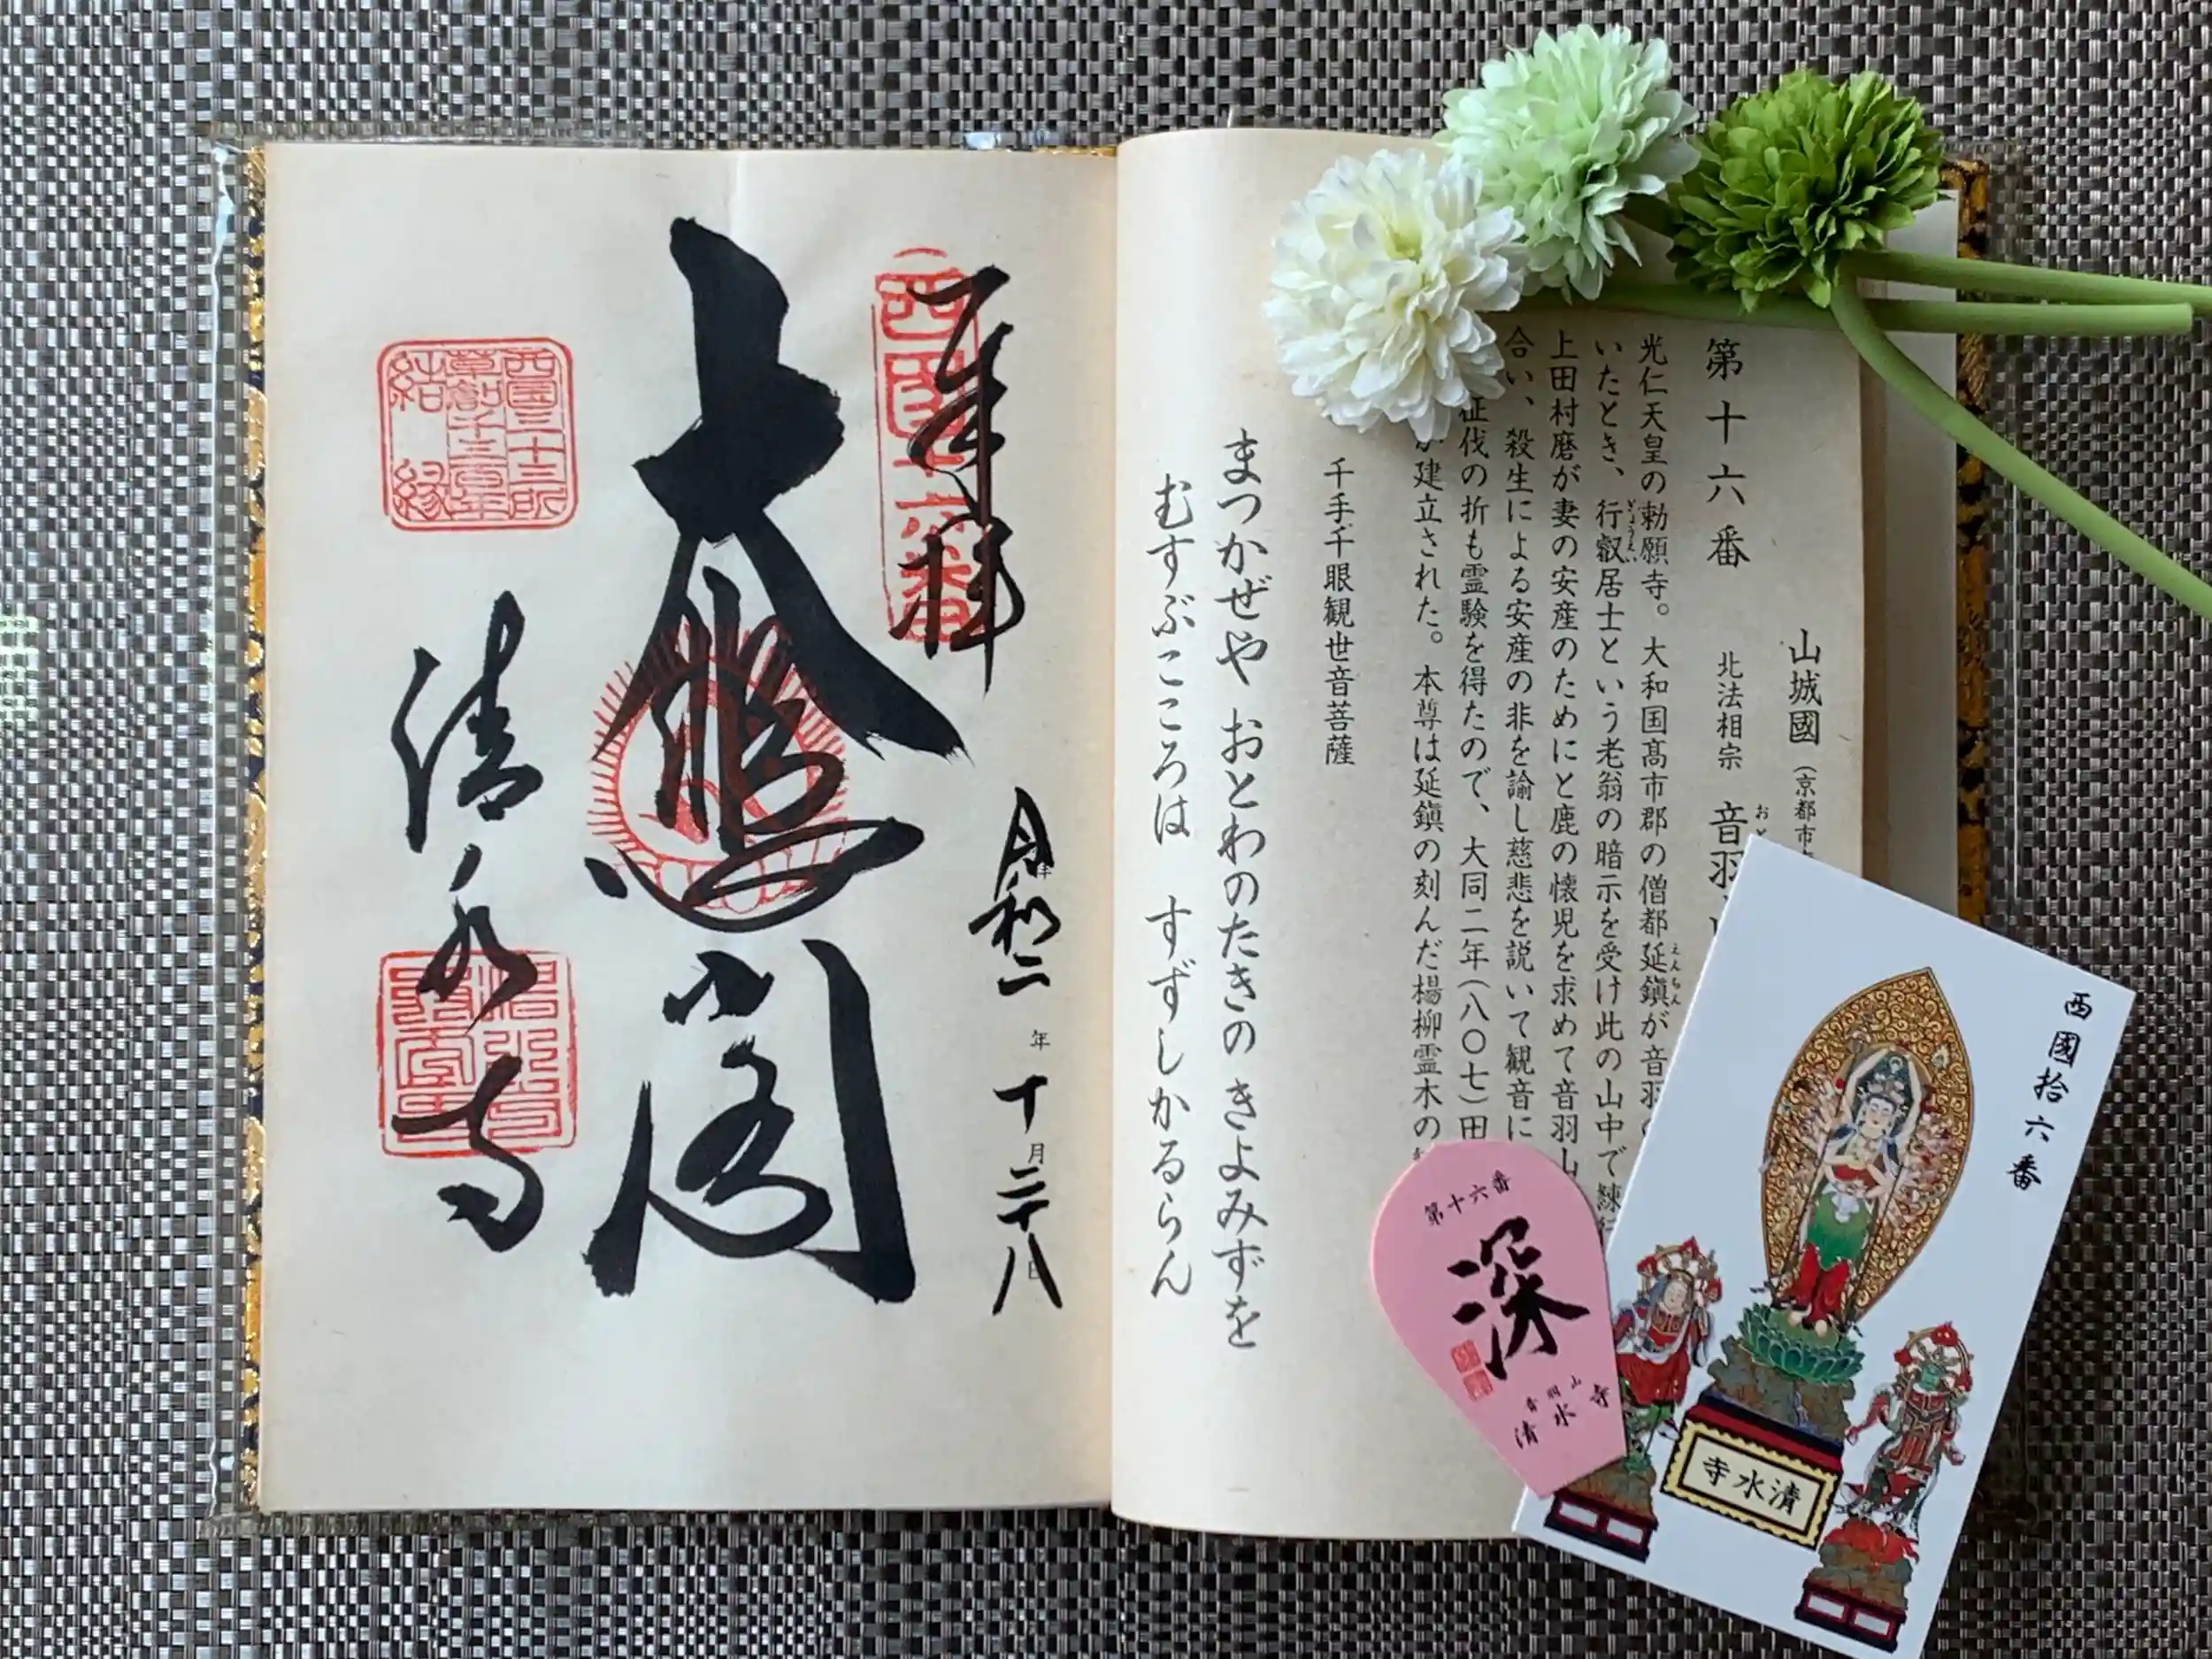 山城國（京都市
第十六番　北法相宗　音羽
光仁天皇の勅願寺。大和国高市郡の僧都延鎮が音羽
いたとき、行叡居士という老翁の暗示を受け此の山中で練
上田村麿が妻の安産のためにと鹿の懐児を求めて音羽山
合い、殺生による安産の非を諭し慈悲を説いて観音に
征伐の折も霊験を得たので、大同二年（八〇七）田
が建立された。本尊は延鎮の刻んだ楊柳霊木の
千手千眼観世音菩薩
まつかぜや おとわのたきの きよみずを
むすぶこころは すずしかるらん
奉拝
西国十六番
令和二年十月二十八日
大悲閣
西国三十三所
草創千三百年
結縁
清水寺
西國拾六番
清水寺
第十六番
深
音羽山
清水寺